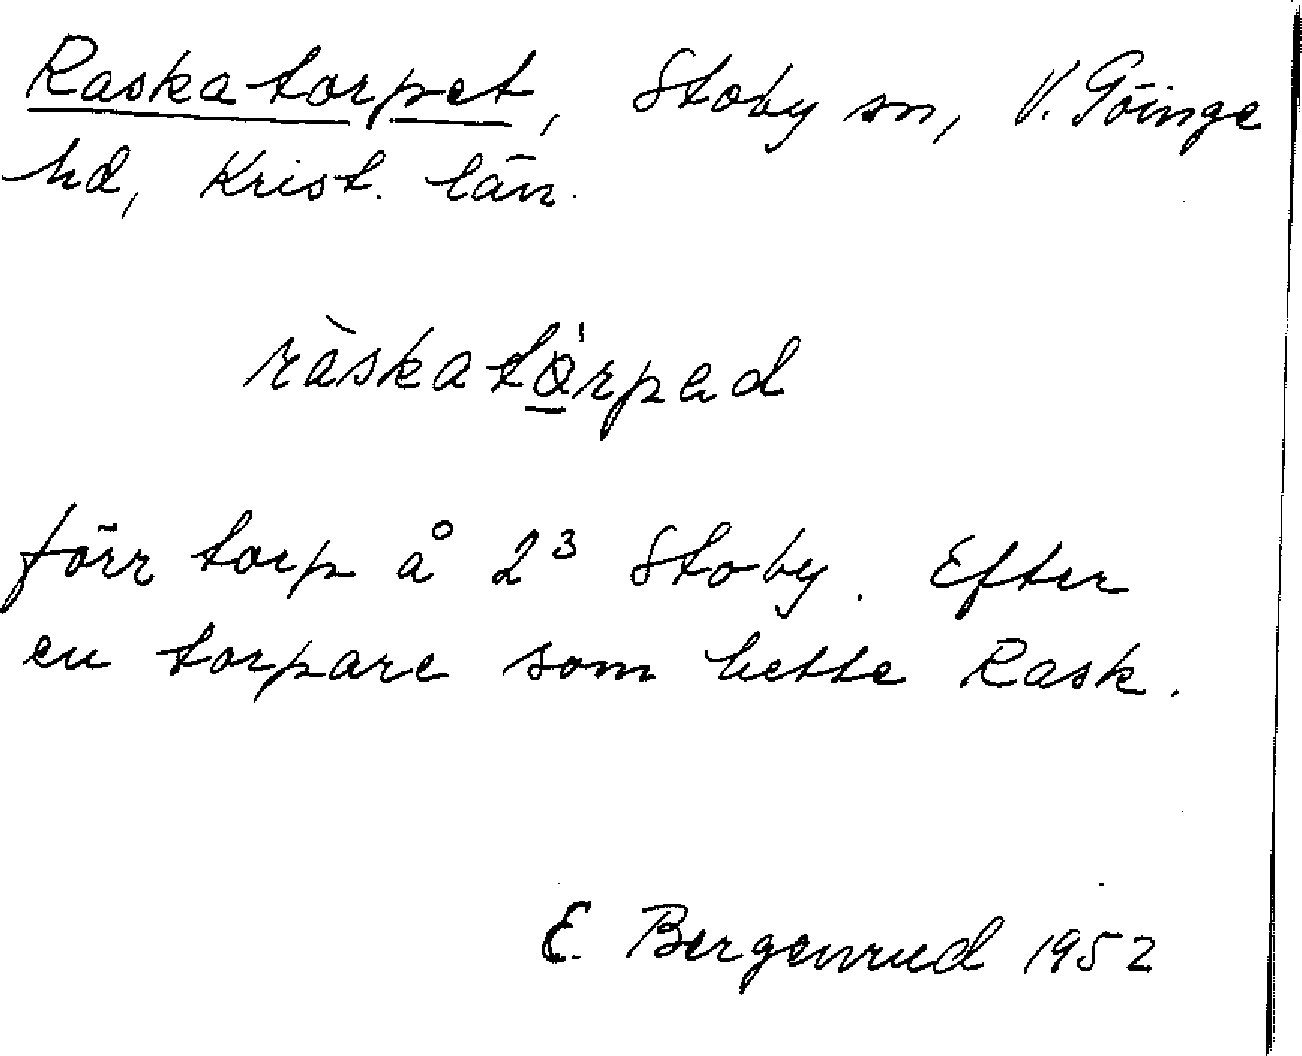 Raskatorpet, Stoby sn, V. Göinge
hd, Krist. län.
ràskatǫ́rpad
förr torp å 2³ Stoby. Efter
en torpare som hette Rask.
E. Bergenrud 1952